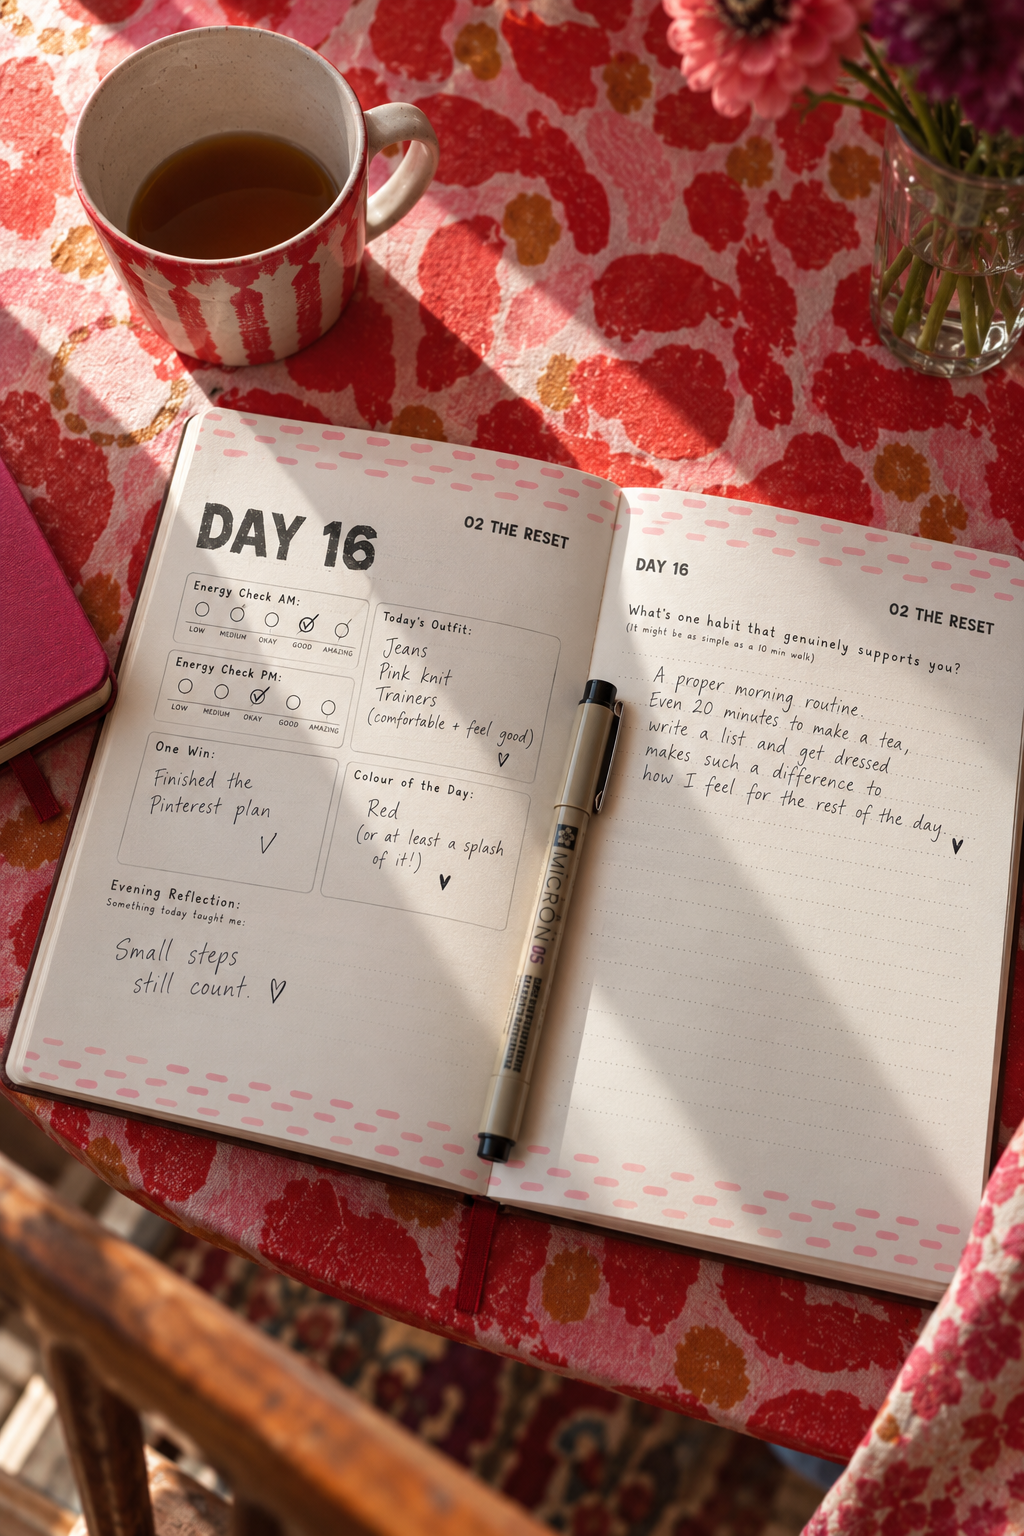 DAY 16
02 THE RESET
Energy Check AM:
LOW MEDIUM OKAY GOOD AMAZING
Energy Check PM:
LOW MEDIUM OKAY GOOD AMAZING
Today's Outfit:
Jeans
Pink knit
Trainers
(comfortable + feel good)
One Win:
Finished the
Pinterest plan
Colour of the Day:
Red
(or at least a splash
of it!)
Evening Reflection:
Something today taught me:
Small steps
still count.
MICRON 05
DAY 16
02 THE RESET
What's one habit that genuinely supports you?
(It might be as simple as a 10 min walk)
A proper morning routine.
Even 20 minutes to make a tea,
write a list and get dressed
makes such a difference to
how I feel for the rest of the day.